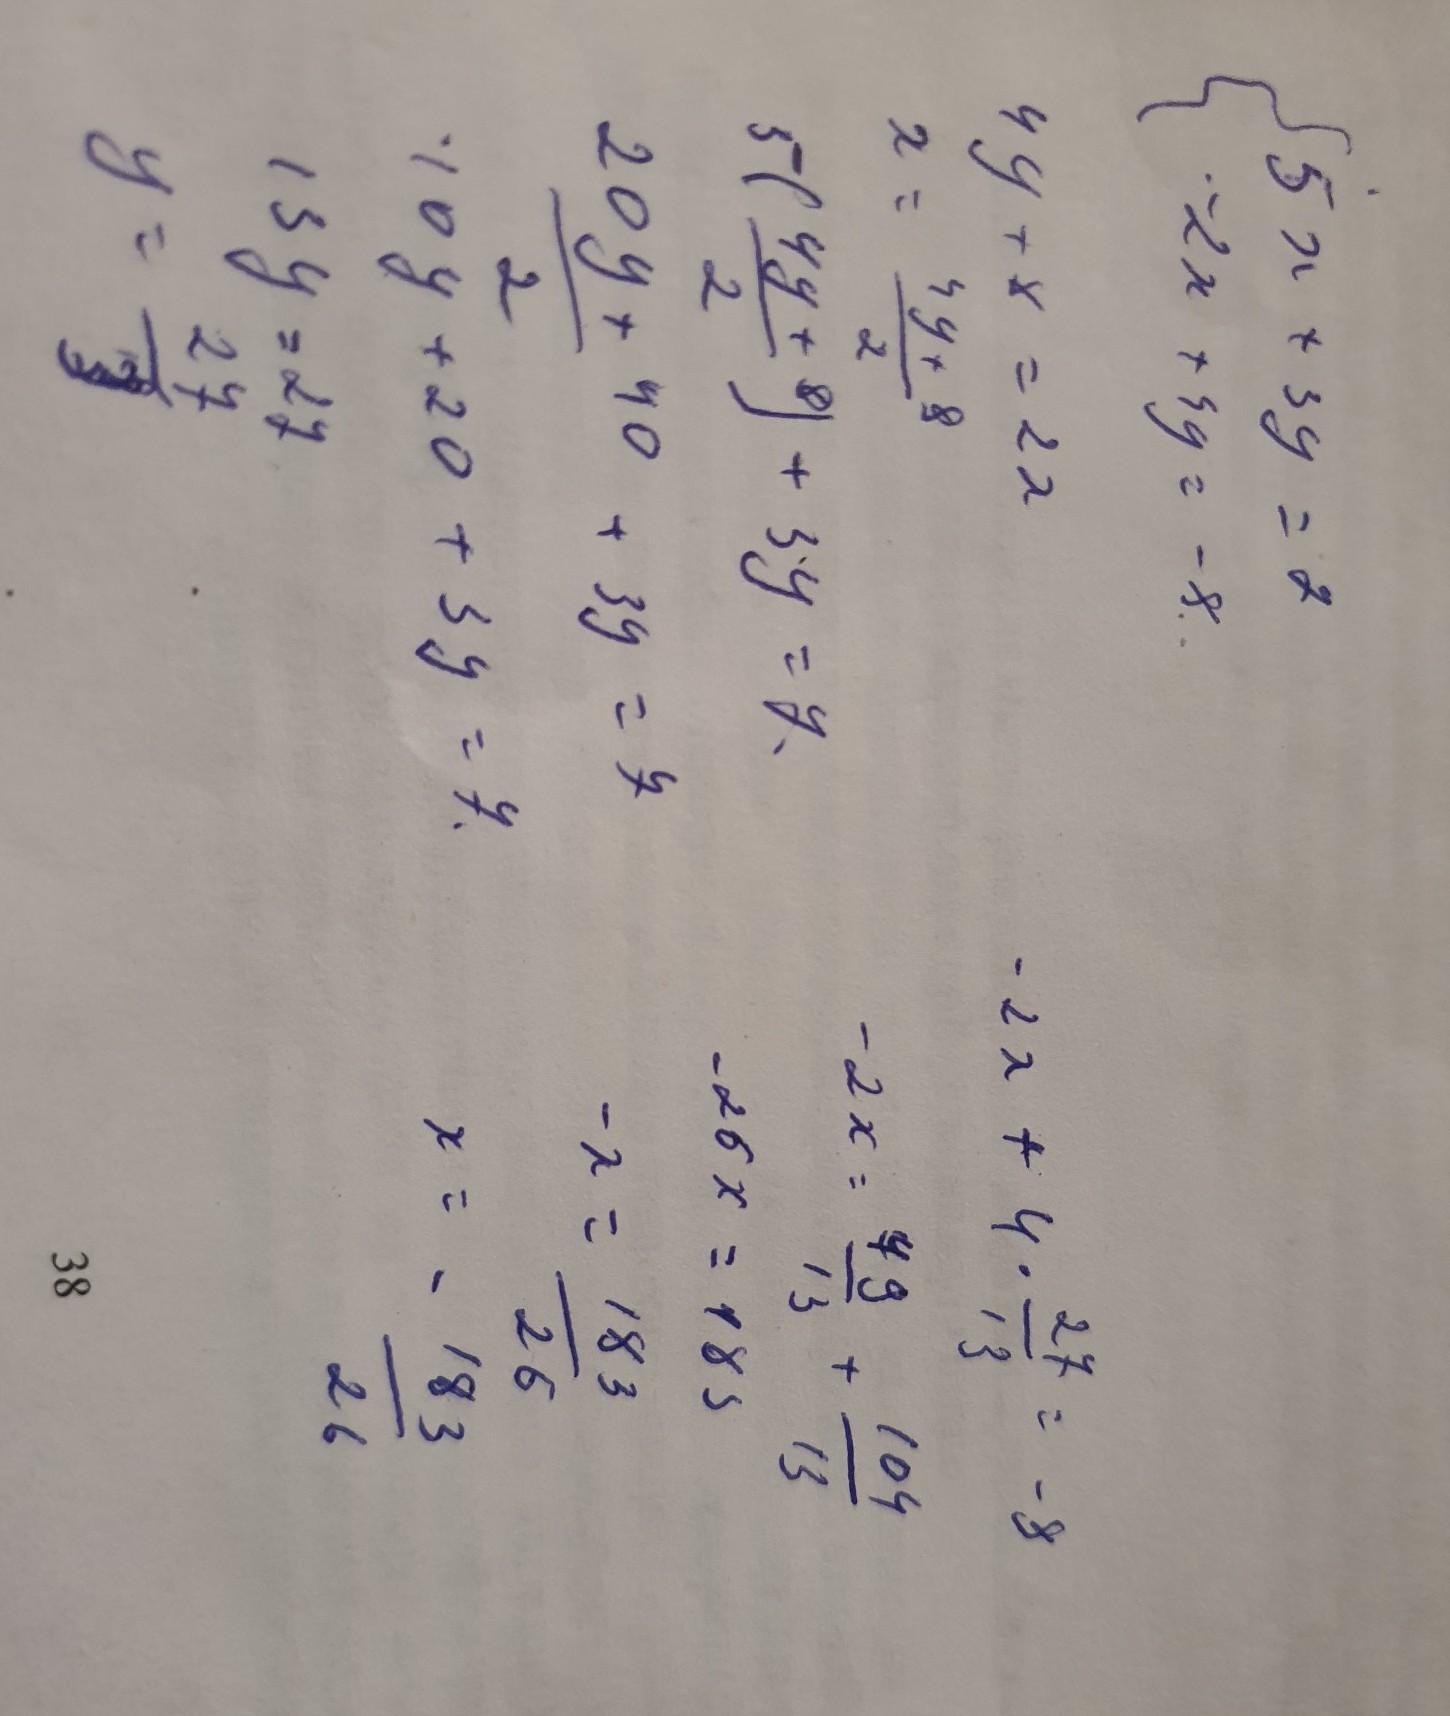 5x + 3y = 2
-2x + 4y = -8.
4y + 8 = 2x
x = 4y + 8 / 2
5(4y + 8 / 2) + 3y = 7.
20y + 40 / 2 + 3y = 7
10y + 20 + 3y = 7.
13y = 27
y = 27
-2x + 4 · 27/13 = -8
-2x = 79/13 + 104/13
-26x = 183
-x = 183/26
x = - 183/26
38